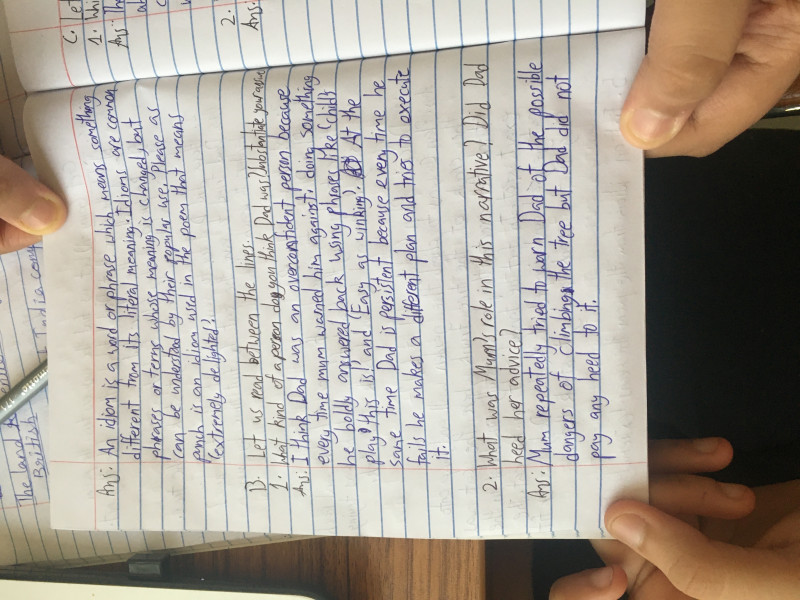 Ans: An idiom is a word or phrase which means something
different from its literal meaning. Idioms are common
phrases or terms whose meaning is changed, but
can be understood by their popular use. Please as
punch is an idiom used in the poem that means
'extremely delighted'.
B. Let us read between the lines.
1. What kind of a person do you think Dad was? Substantiate your answer
Ans: I think Dad was an overconfident person because
every time mum warned him against doing something
he boldly answered back using phrases like 'Child's
play this is!' and 'Easy as winking.' At the
same time Dad is persistent because every time he
fails he makes a different plan and tries to execute
it.
2. What was Mum's role in this narrative? Did Dad
heed her advice?
Ans: Mum repeatedly tried to warn Dad of the possible
dangers of climbing the tree but Dad did not
pay any heed to it.
C. Let
1. Whi
Ans: Th
2.
Ans:
The land
British
India